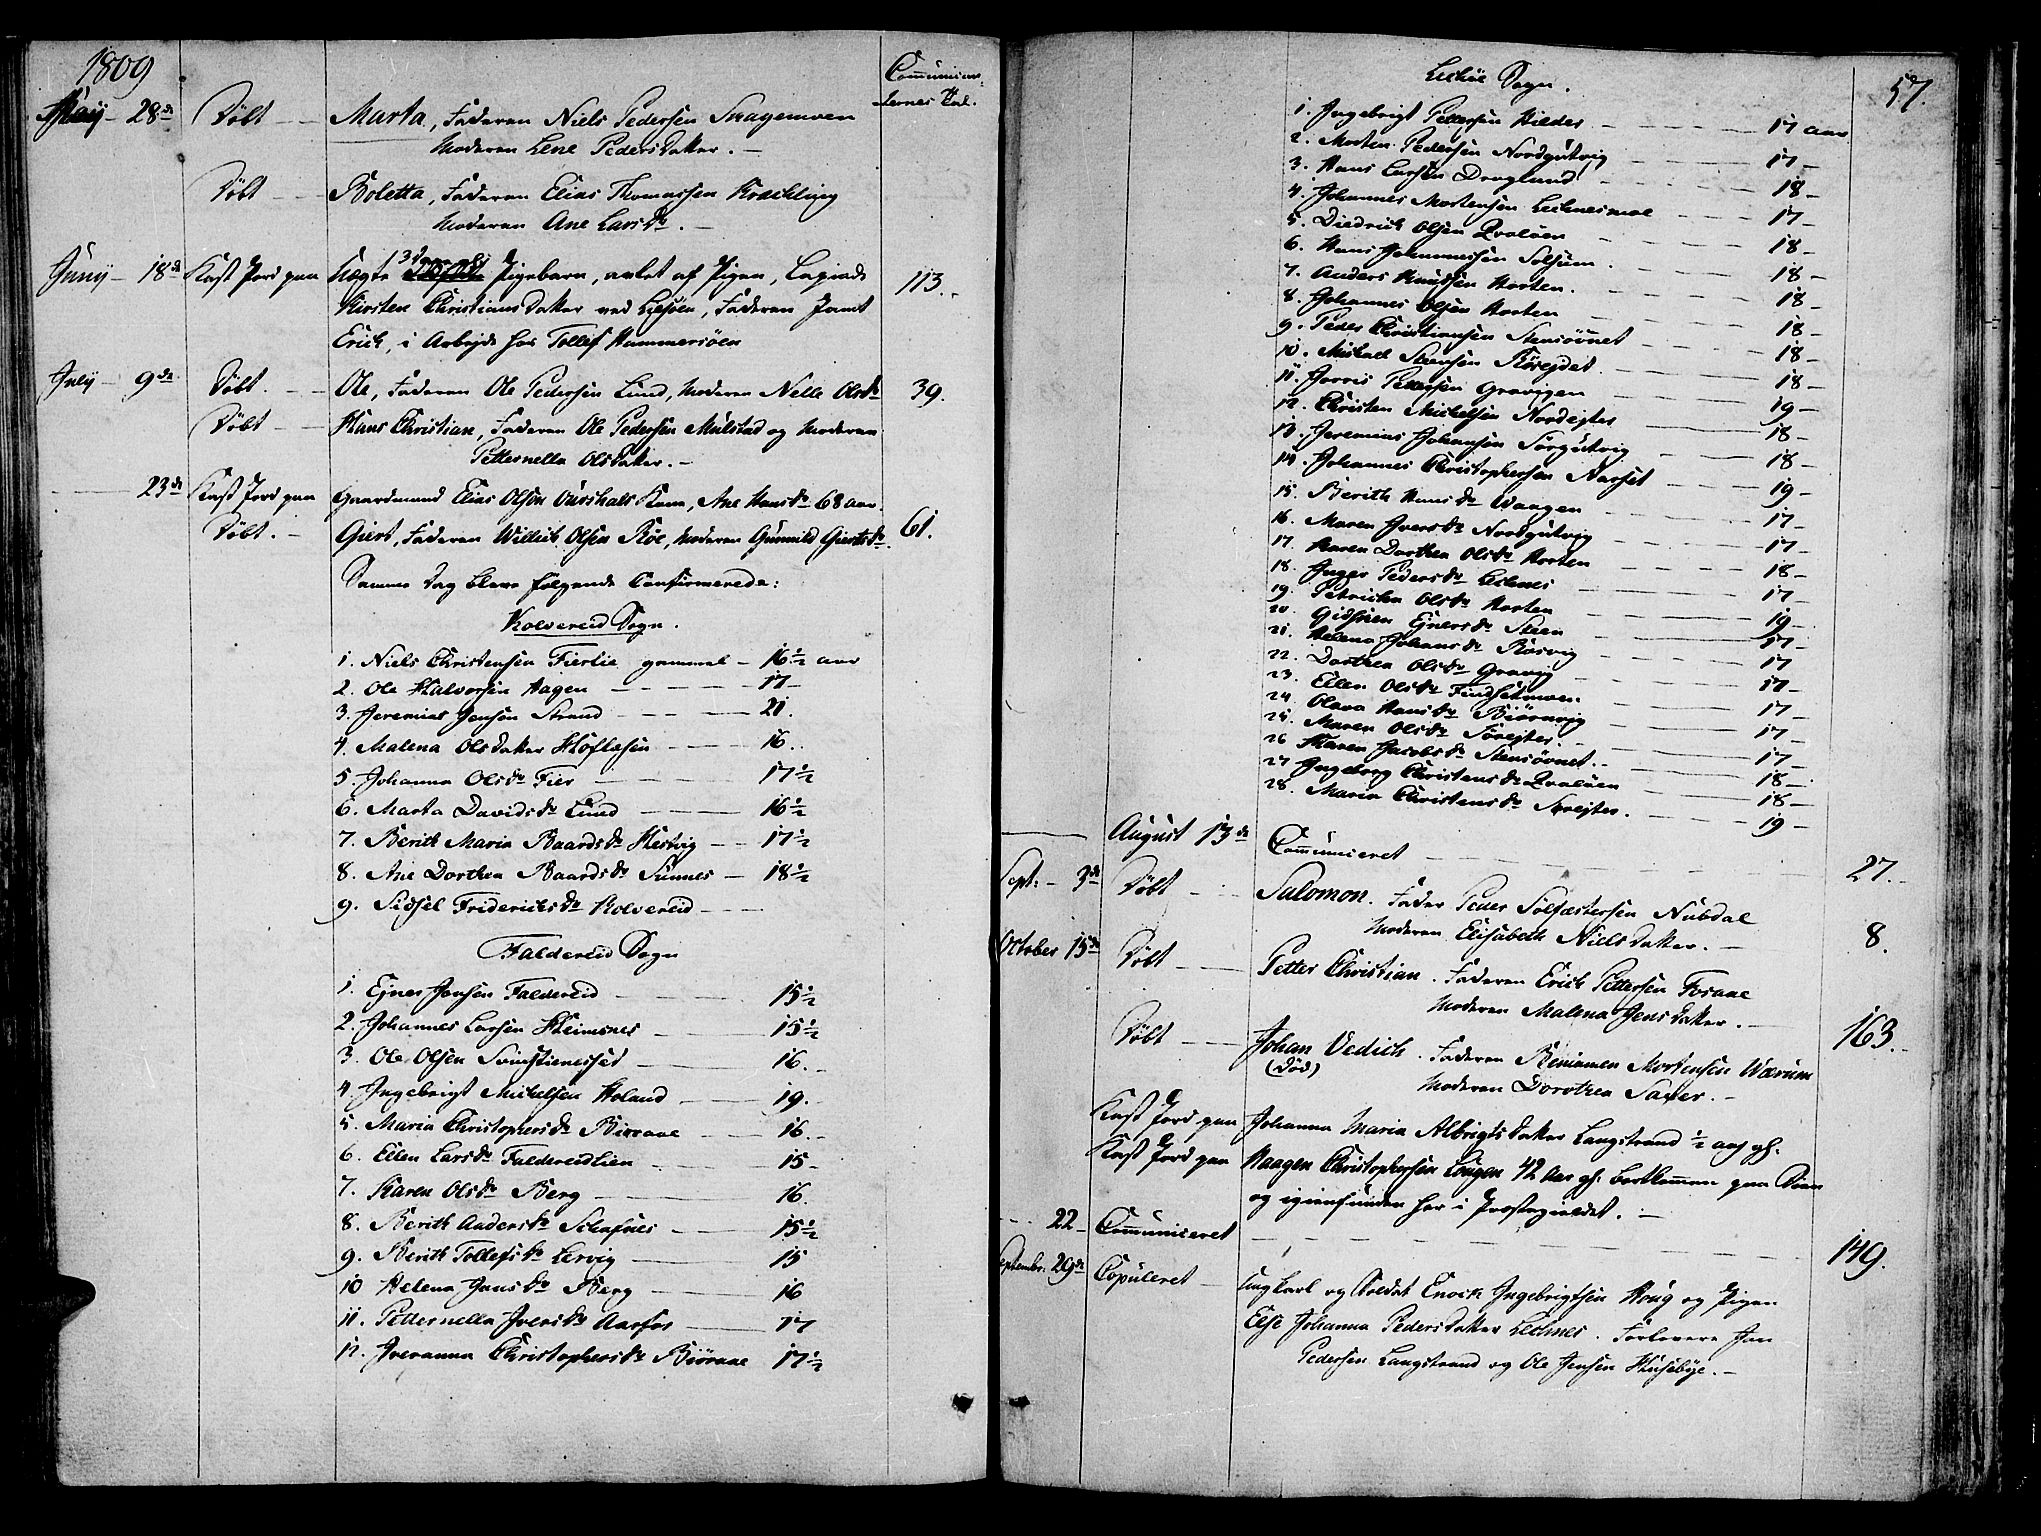 1809
Communican-
ternes Tal.
May - 28de Døbt - Marta, Faderen Niels Pedersen Skagemoen
Moderen Lene Pedersdatter. -
Døbt - Boletta, Faderen Elias Thomassen
Moderen Ane Larsdr. -
Juny - 18de Kast Jord paa Pigebarn, avlet af Pigen,
Kirsten Christiansdatter ved Lekøen, Faderen 113.
Erich, i Arbejde hos Tollef Hummersøen
July - 9de Døbt. - Ole, Faderen Ole Pedersen Lund, Moderen Nelle Olsdr 39.
Døbt - Hans Christian, Faderen Ole Pedersen Mulstad og Moderen
Petternella Olsdatter. -
- 23de Kast Jord paa Gaardmand Elias Olsen Kone, Ane Hansdr 68 aar.
Døbt. - Giert, Faderen Willich Olsen Røe, Moderen Gunnild Giertsdr. 61.
Samme Dag bleve følgende Confirmerede:
Kolvereid Sogn.
1. Niels Christensen Fierlie gammel - 16½ aar
2. Ole Halvorsen Aagen - 17 -
3. Jeremias Jensen Strand - 21.
4. Malena Olsdatter Høflesen - 16.
5 Johanna Olsdr Fier - 17½
6. Marta Davidsdr Lund - 16½
7. Berith Maria Baardsdr Hestvig - 17½
8. Ane Dorthea Baardsdr Sunnes - 18½
9. Sidsel Friderichsdr Kolvereid -
Faldereid Sogn
1. Ejner Jensen Faldereid - 15½
2. Johannes Larsen Heimsnes - 15½
3. Ole Olsen - 16. -
4. Ingebrigt Michelsen Holand - 19. -
5. Maria Christophersdr Biøraae - 16. -
6. Ellen Larsdr Faldereidlien - 15 -
7. Karen Olsdr Berg - 16.
8. Berith Andersdr - 15½
9. Berith Tollefsdr Lervig - 15
10 Helena Jansdr Berg - 16
11. Petternella Iversdr Aarfor - 17
12. Iveranna Christophersdr Biøraae 17½
57.
Lekøe Sogn.
1. Ingebrigt Pettersen Kilder - 17 aar
2. Morten Pedersen Nordgutvig - 17 -
3. Hans Larsen Draglund - 18 -
4. Johannes Mortensen Leknesmoe - 17 -
5. Diedrich Olsen Qvaløen - 18 -
6. Hans Johannessen Solsem - 18 -
7. Anders Knudsen Horten. - 18
8. Johannes Olsen Horten - 18 -
9. Peder Christiansen Stensøvnet - 18 -
10. Michael Steensen - 18 -
11. Jorris Pettersen Gravigen - 19 -
12. Christen Michelsen Nordejter - 18 -
13. Jeremias Johansen Sørgutvig - 18 -
14. Johannes Christophersen Aarset - 19 -
15. Berith Hansdr Waagen - 17 -
16. Maren Iversdr Nordgutvig - 17 -
17. Karen Dorthea Olsdr Horten - 18 -
18. Inger Pedersdr Leknes - 17 -
19. Petricha Olsdr Horten - 19 -
20. Ejnersdr Steen - 17 -
21. Helena Johansdr Røsvig - 17
22. Dorthea Olsdr Gravig - 17 -
23. Ellen Olsdr - 17 -
24. Olava Hansdr Biørnvig - 17 -
25. Maren Olsdr Sørejter. - 17 -
26 Maren Jacobsdr Stensøvnet. - 18 -
27 Ingeborg Christensdr Qvaløen - 18 -
28. Maria Christensdr Sørejter. - 19 -
August 13de Communiceret - 27. -
Sept. - 3de Døbt - Salomon. Fader Peder Solfæstersen Nubdal
Moderen Elisabeth Nielsdatter. - 8.
October 15de Døbt - Petter Christian. Faderen Erich Pettersen Foraae
Moderen Malena Jensdatter. -
Døbt - Johan Vedich. Faderen Beniamen Mortensen Wærum 163. -
(Død) Moderen Dorothea Sater. -
Kast Jord paa Johanna Maria Albrigtsdatter Langstrand ½ aar gl.
Kast Jord paa Haagen Christophersen 42 Aar gl. bortkommen paa Søen
og igienfunden her i Præstegieldet. -
- 22 - Communiceret - 149.
Septembr. 29de Copuleret - Ungkarl og Soldat Enoch Ingebrigtsen Houg og Pigen
Else Johanna Pedersdatter Leknes. Forlovere Jon
Pedersen Langstrand og Ole Jensen Husebye. -